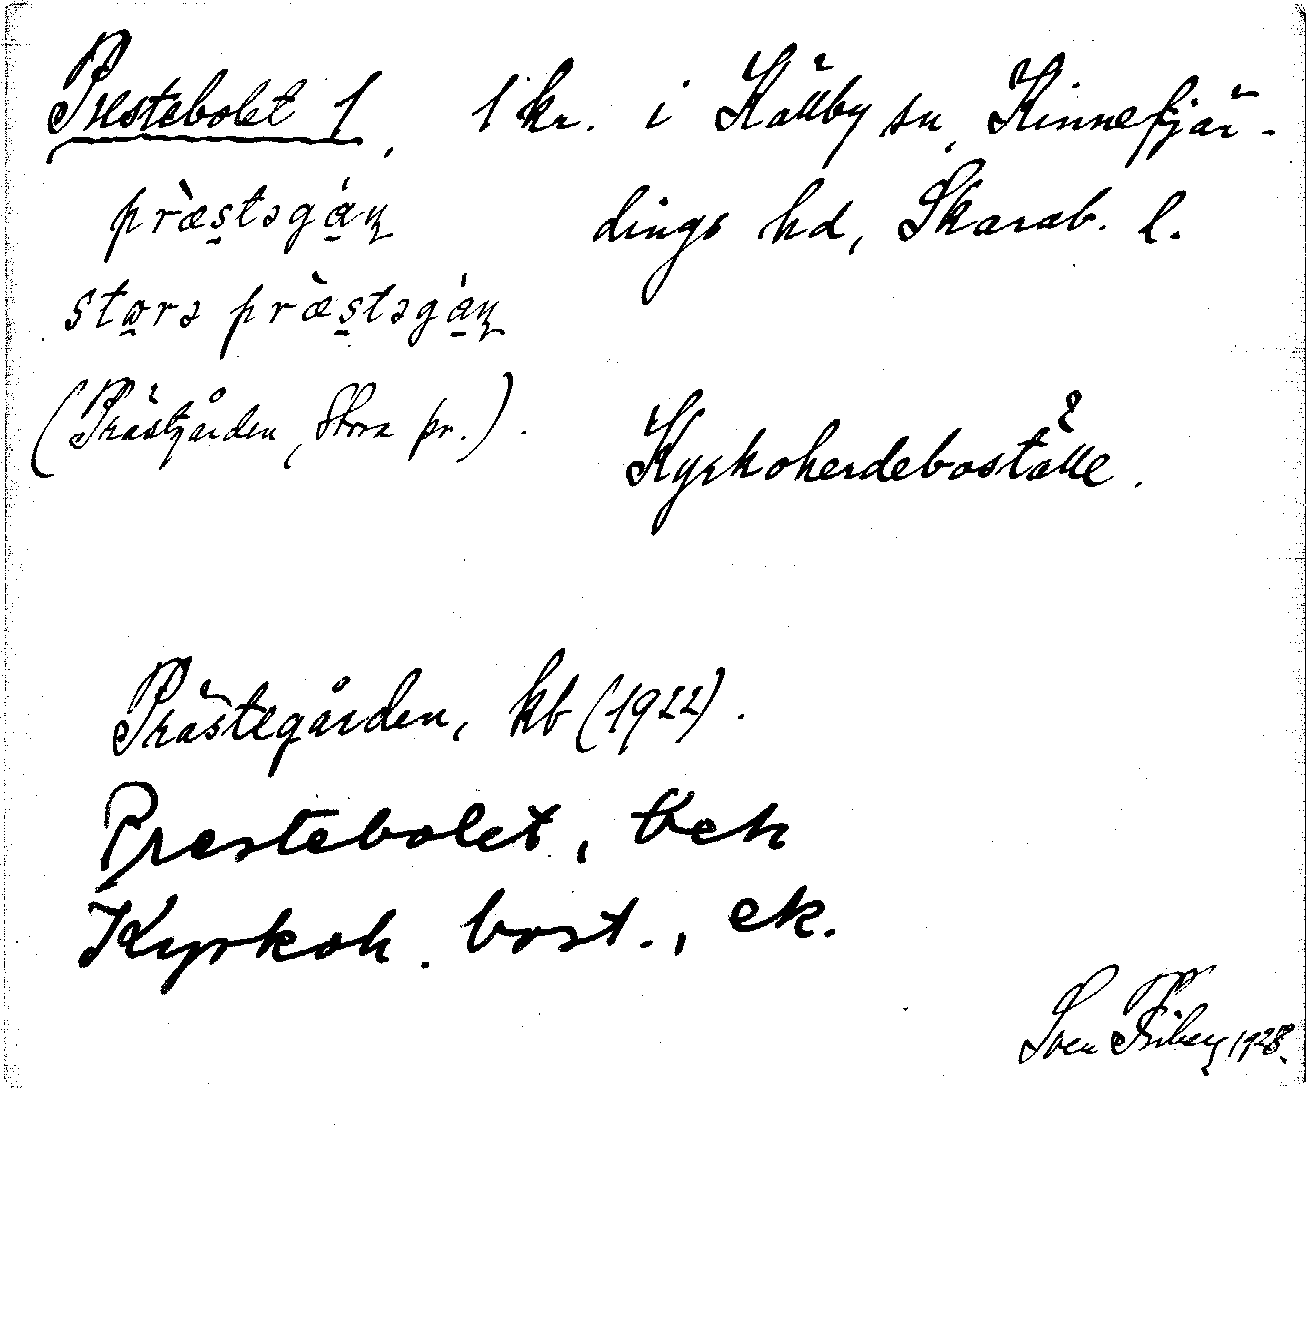 Prestebolet 1, 1 kr. i Källby sn, Kinnefjär-
præstəgán̥ dings hd, Skarab. l.
storə præstəgán̥
(Prästgården, Stora pr.).
Kyrkoherdeboställe.
Prästegården, kb (1922).
Prestebolet, bek
Kyrkoh. bost., ek.
Sven Friberg 1928.